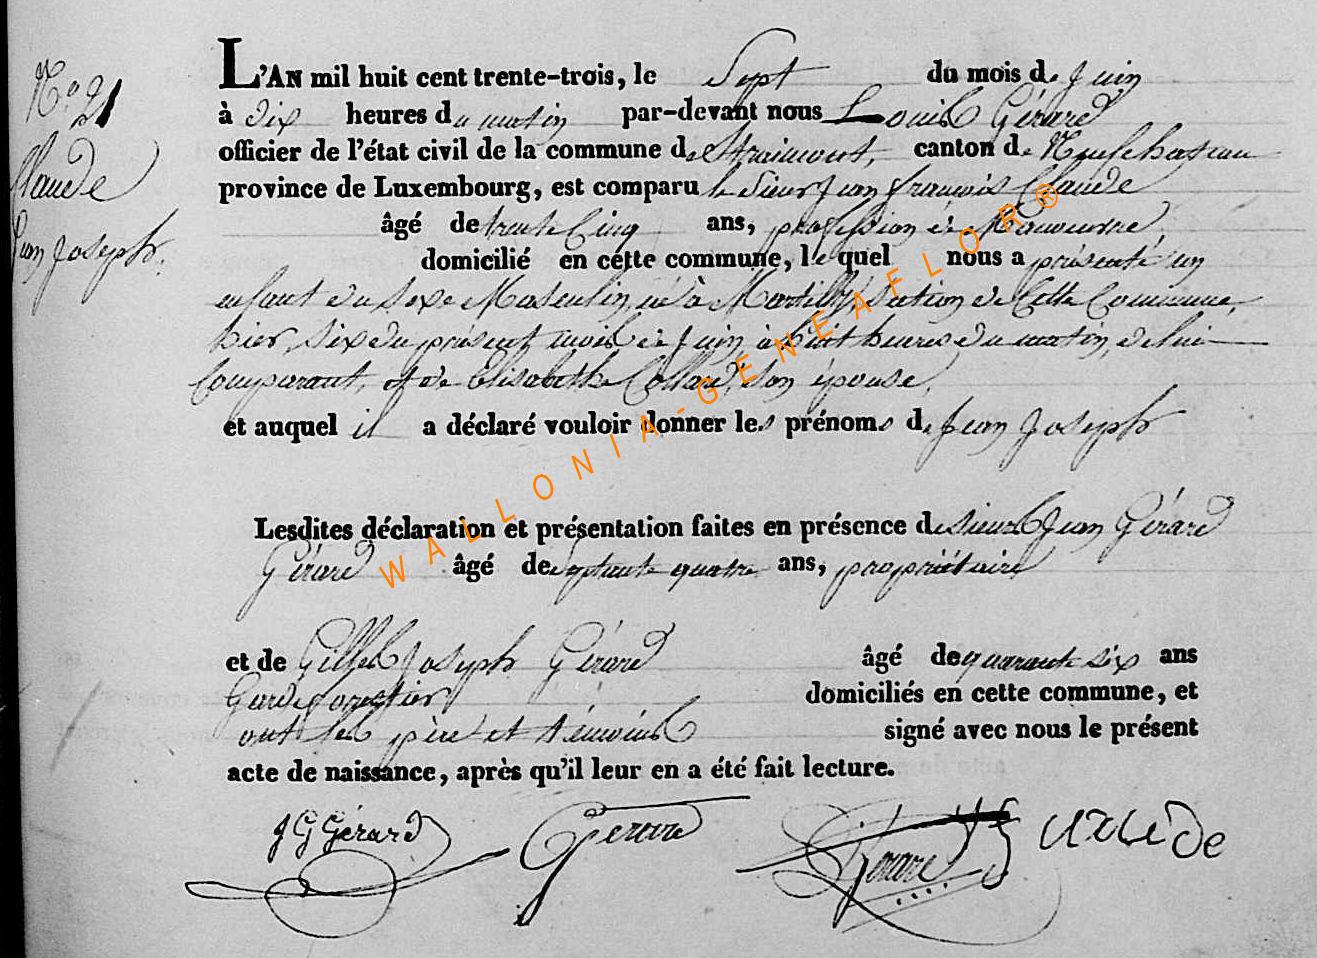 N.° 21
Claude
Jean Joseph.
L'AN mil huit cent trente-trois, le Sept du mois de Juin
à dix heures du matin par-devant nous Louis Gérard
officier de l'état civil de la commune de Straimont, canton de Neufchateau
province de Luxembourg, est comparu le Sieur Jean françois Claude
âgé de trente Cinq ans, profession de Manoeuvre
domicilié en cette commune, lequel nous a présenté un
enfant du Sexe Masculin, né à Martilly, Section de Cette Commune,
hier, Six du présent mois de Juin, à huit heures du matin, de lui
Comparant, et de Elisabethe Collard, Son épouse,
et auquel il a déclaré vouloir donner les prénoms de Jean Joseph
Lesdites déclaration et présentation faites en présence de Sieurs Jean Gérard
Gérard âgé de Septante quatre ans, propriétaire
et de Gilles Joseph Gérard âgé de quarante Six ans
Garde forestier domiciliés en cette commune, et
ont les père et témoins signé avec nous le présent
acte de naissance, après qu'il leur en a été fait lecture.
J G Gérard Gerard Gerard Claude
WALLONIA-GENEAFLOR®